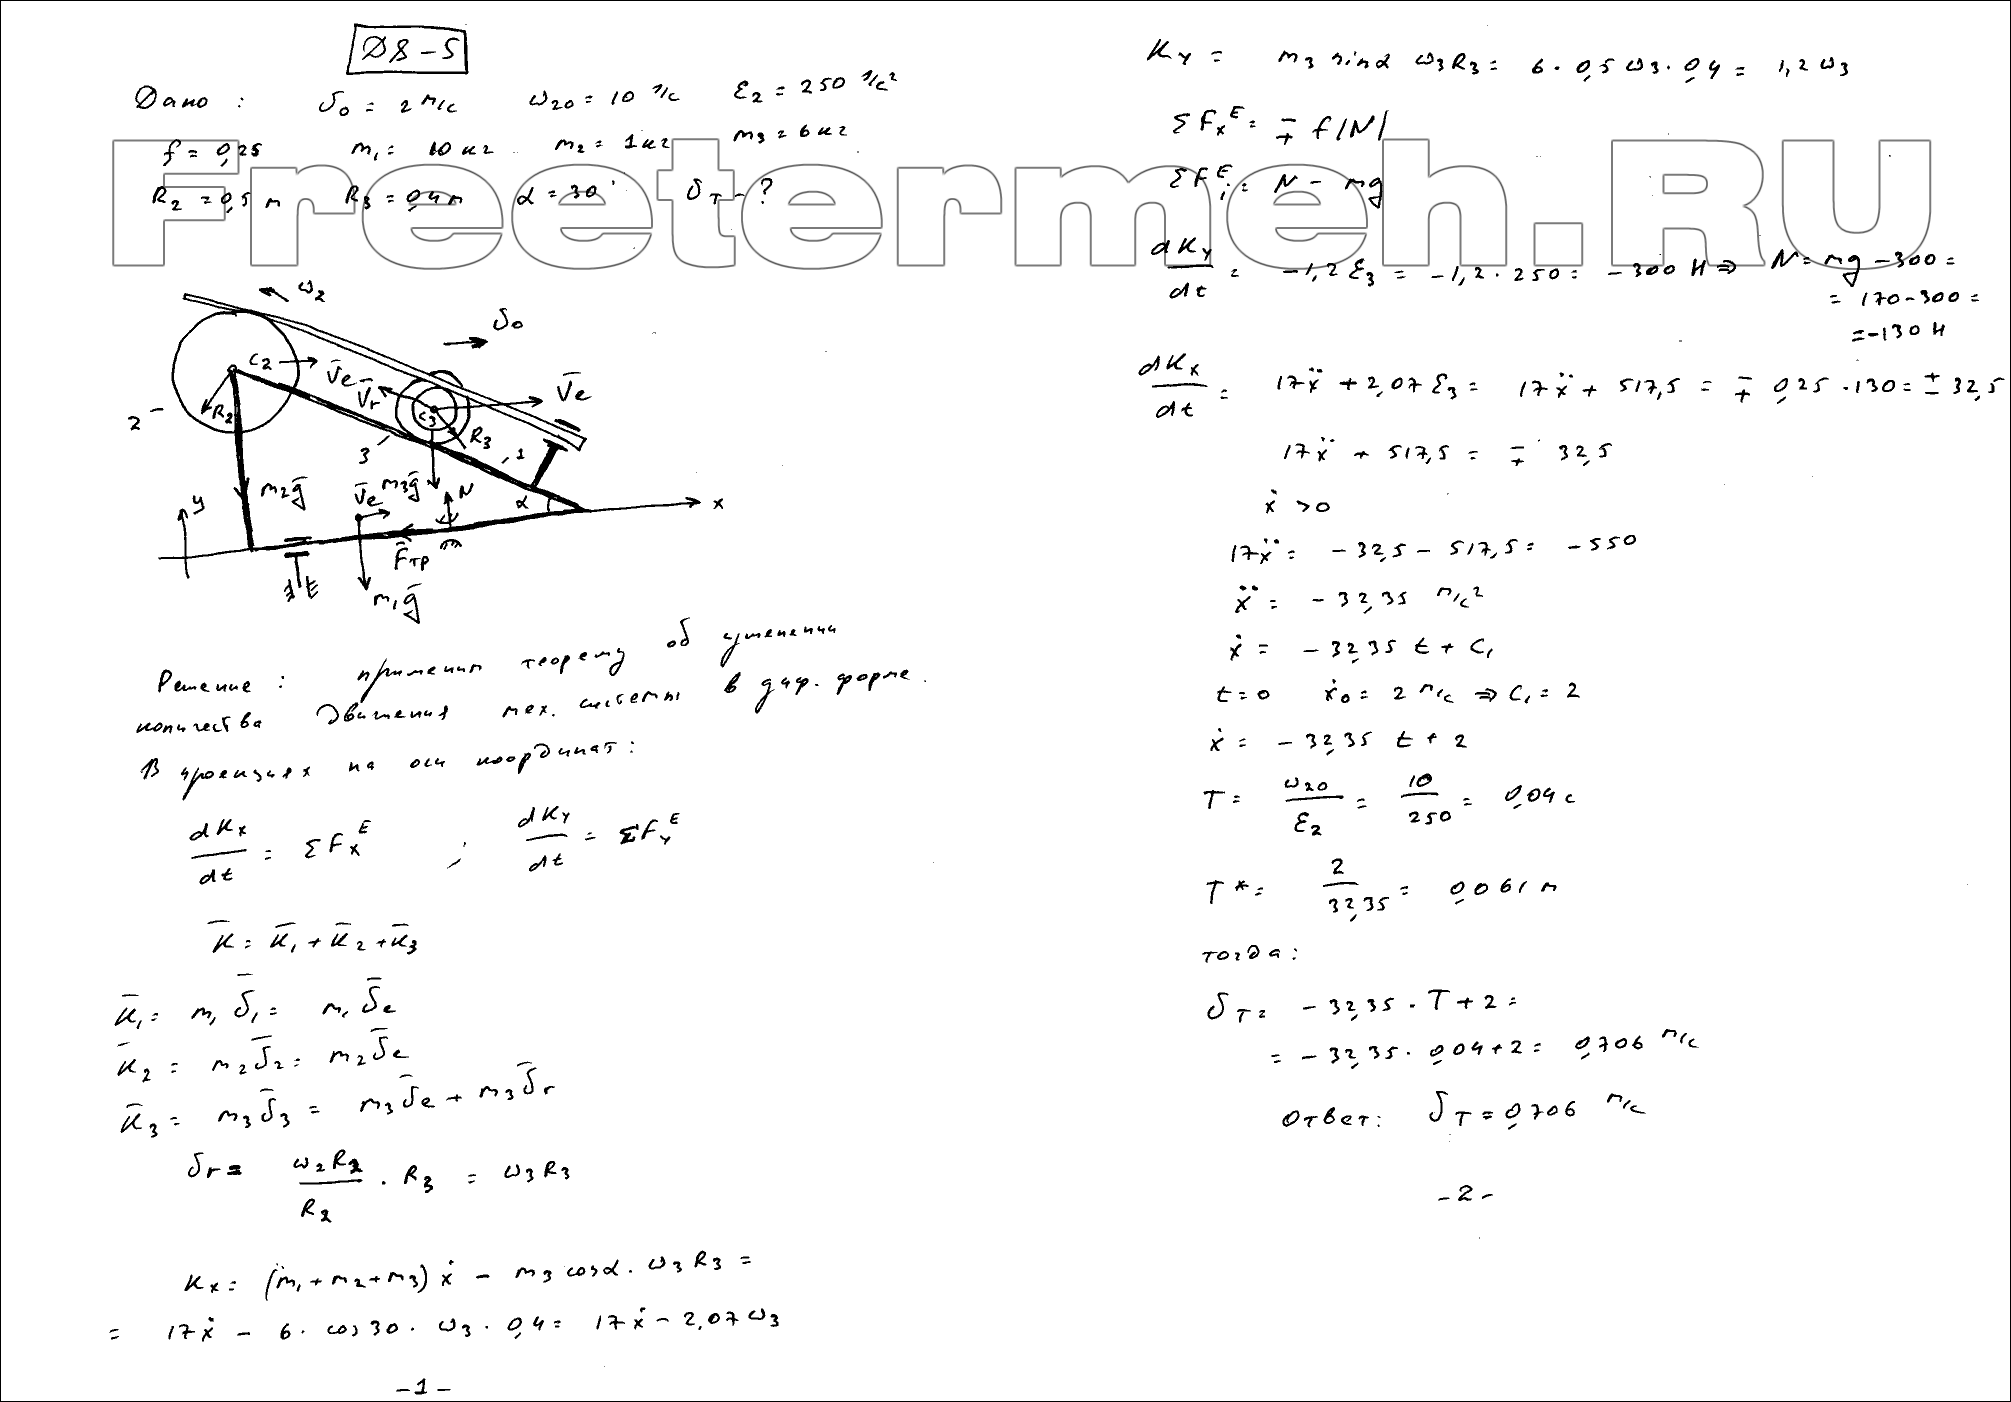 D8-5
Дано: υ₀ = 2 м/с ω₂₀ = 10 1/с ε₂ = 250 1/с²
f = 0,25 m₁ = 10 кг m₂ = 1 кг m₃ = 6 кг
R₂ = 0,5 м R₃ = 0,4 м α = 30° υ_T - ?
Freetermeh.RU
ω₂
υ₀
C₂ V̄e
V̄r V̄e
2 R₂ C₃ R₃
3 1
m₂ḡ V̄e m₃ḡ N α x
y
F̄тр
m₁ḡ
Решение: применим теорему об изменении
количества движения мех. системы в диф. форме.
В проекциях на оси координат:
dKx/dt = ΣFx^E ; dKy/dt = ΣFy^E
K̄ = K̄₁ + K̄₂ + K̄₃
K̄₁ = m₁ῡ₁ = m₁ῡe
K̄₂ = m₂ῡ₂ = m₂ῡe
K̄₃ = m₃ῡ₃ = m₃ῡe + m₃ῡr
υr = ω₂R₂/R₂ · R₃ = ω₃R₃
Kx = (m₁ + m₂ + m₃)ẋ - m₃ cosα · ω₃R₃ =
= 17ẋ - 6 · cos 30 · ω₃ · 0,4 = 17ẋ - 2,07ω₃
-1-
Ky = m₃ sinα ω₃R₃ = 6 · 0,5 ω₃ · 0,4 = 1,2ω₃
ΣFx^E = ∓ f|N|
ΣF^E = N - mg
dKy/dt = -1,2ε₃ = -1,2 · 250 = -300 Н ⇒ N = mg - 300 =
= 170 - 300 =
= -130 Н
dKx/dt = 17ẍ + 2,07ε₃ = 17ẍ + 517,5 = ∓ 0,25 · 130 = ± 32,5
17ẍ + 517,5 = ∓ 32,5
ẋ > 0
17ẍ = -32,5 - 517,5 = -550
ẍ = -32,35 м/с²
ẋ = -32,35 t + C₁
t = 0 ẋ₀ = 2 м/с ⇒ C₁ = 2
ẋ = -32,35 t + 2
T = ω₂₀/ε₂ = 10/250 = 0,04 с
T* = 2/32,35 = 0,061 м
тогда:
υ_T = -32,35 · T + 2 =
= -32,35 · 0,04 + 2 = 0,706 м/с
Ответ: υ_T = 0,706 м/с
-2-